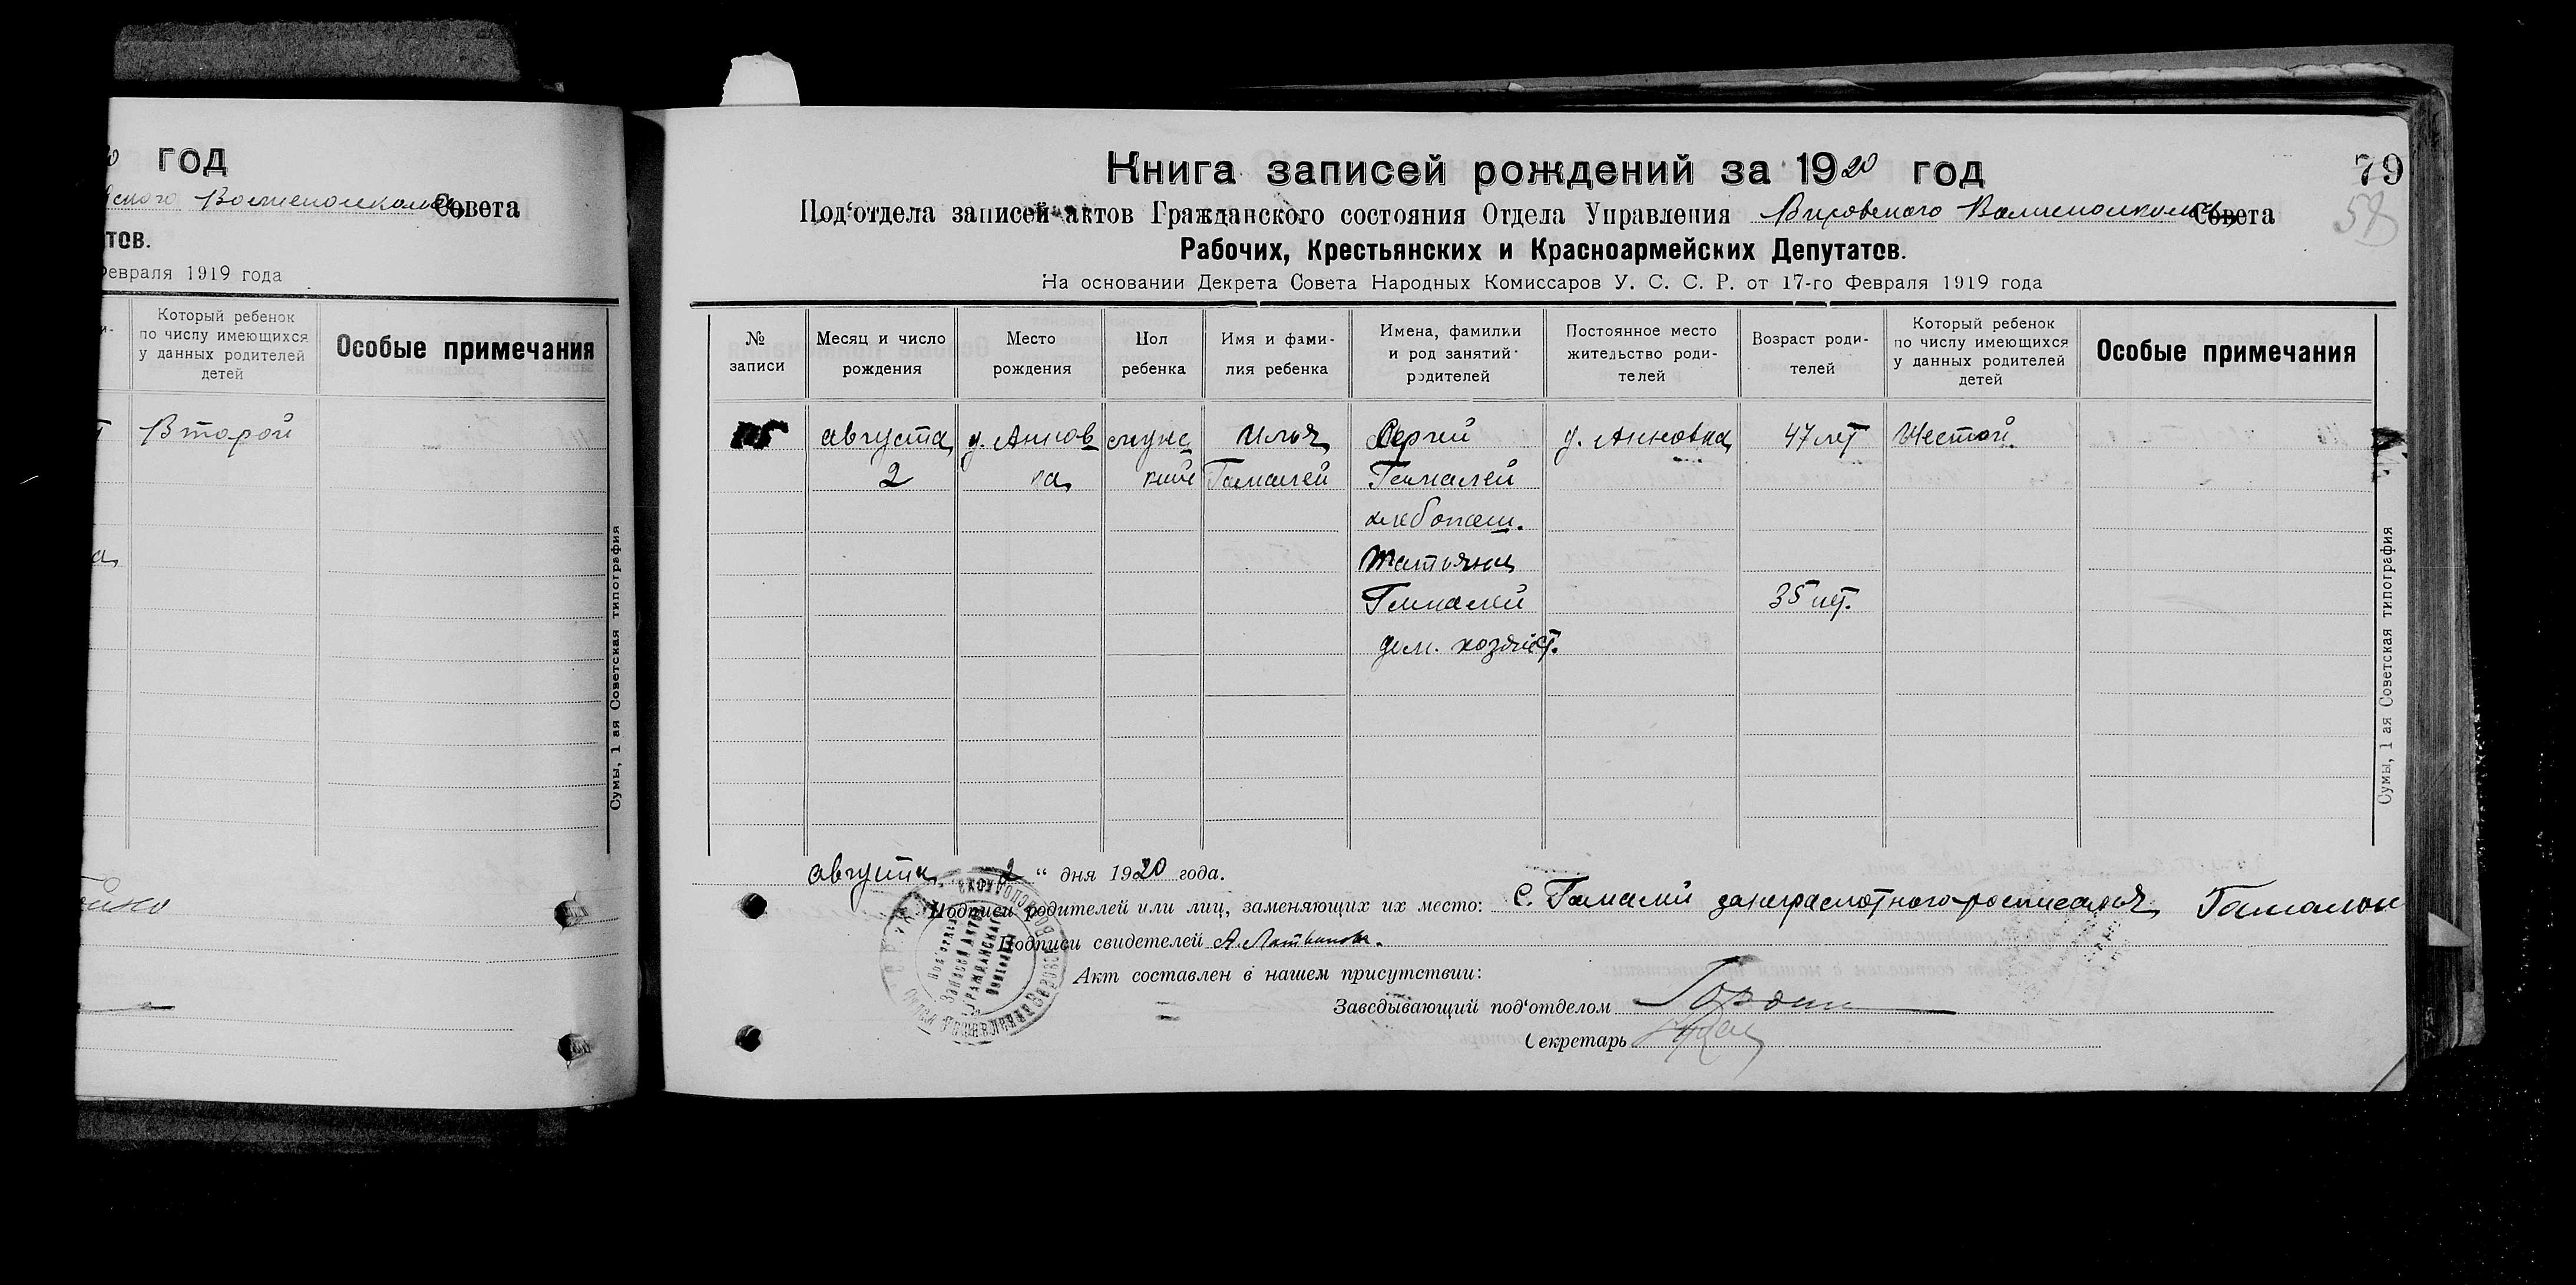 год
Волисполкома Совета
тов.
Февраля 1919 года
Который ребенок
по числу имеющихся
у данных родителей
детей
Особые примечания
Второй
Сумы, 1 ая Советская типография
Книга записей рождений за 1920 год
79
58
Под‘отдела записей актов Гражданского состояния Отдела Управления Вировского Волисполкома Совета
Рабочих, Крестьянских и Красноармейских Депутатов.
На основании Декрета Совета Народных Комиссаров У. С. С. Р. от 17-го Февраля 1919 года
№
записи
Месяц и число
рождения
Место
рождения
Пол
ребенка
Имя и фами-
лия ребенка
Имена, фамилии
и род занятий
родителей
Постоянное место
жительство роди-
телей
Возраст роди-
телей
Который ребенок
по числу имеющихся
у данных родителей
детей
Особые примечания
августа
2
д. Аннов
ка
мужс
кий
Илья
Гамалей
Сергий
Гамалей
хлебопаш.
Татьяна
Гамалей
дом. хозяйст.
д. Анновка
47 лет
35 лет.
Шестой.
Сумы, 1 ая Советская типография
августа 2 “ дня 1920 года.
Подписи родителей или лиц, заменяющих их место: С. Гамалей за неграмотного росписался
Подписи свидетелей
Акт составлен в нашем присутствии:
Заведывающий под‘отделом
Секретарь